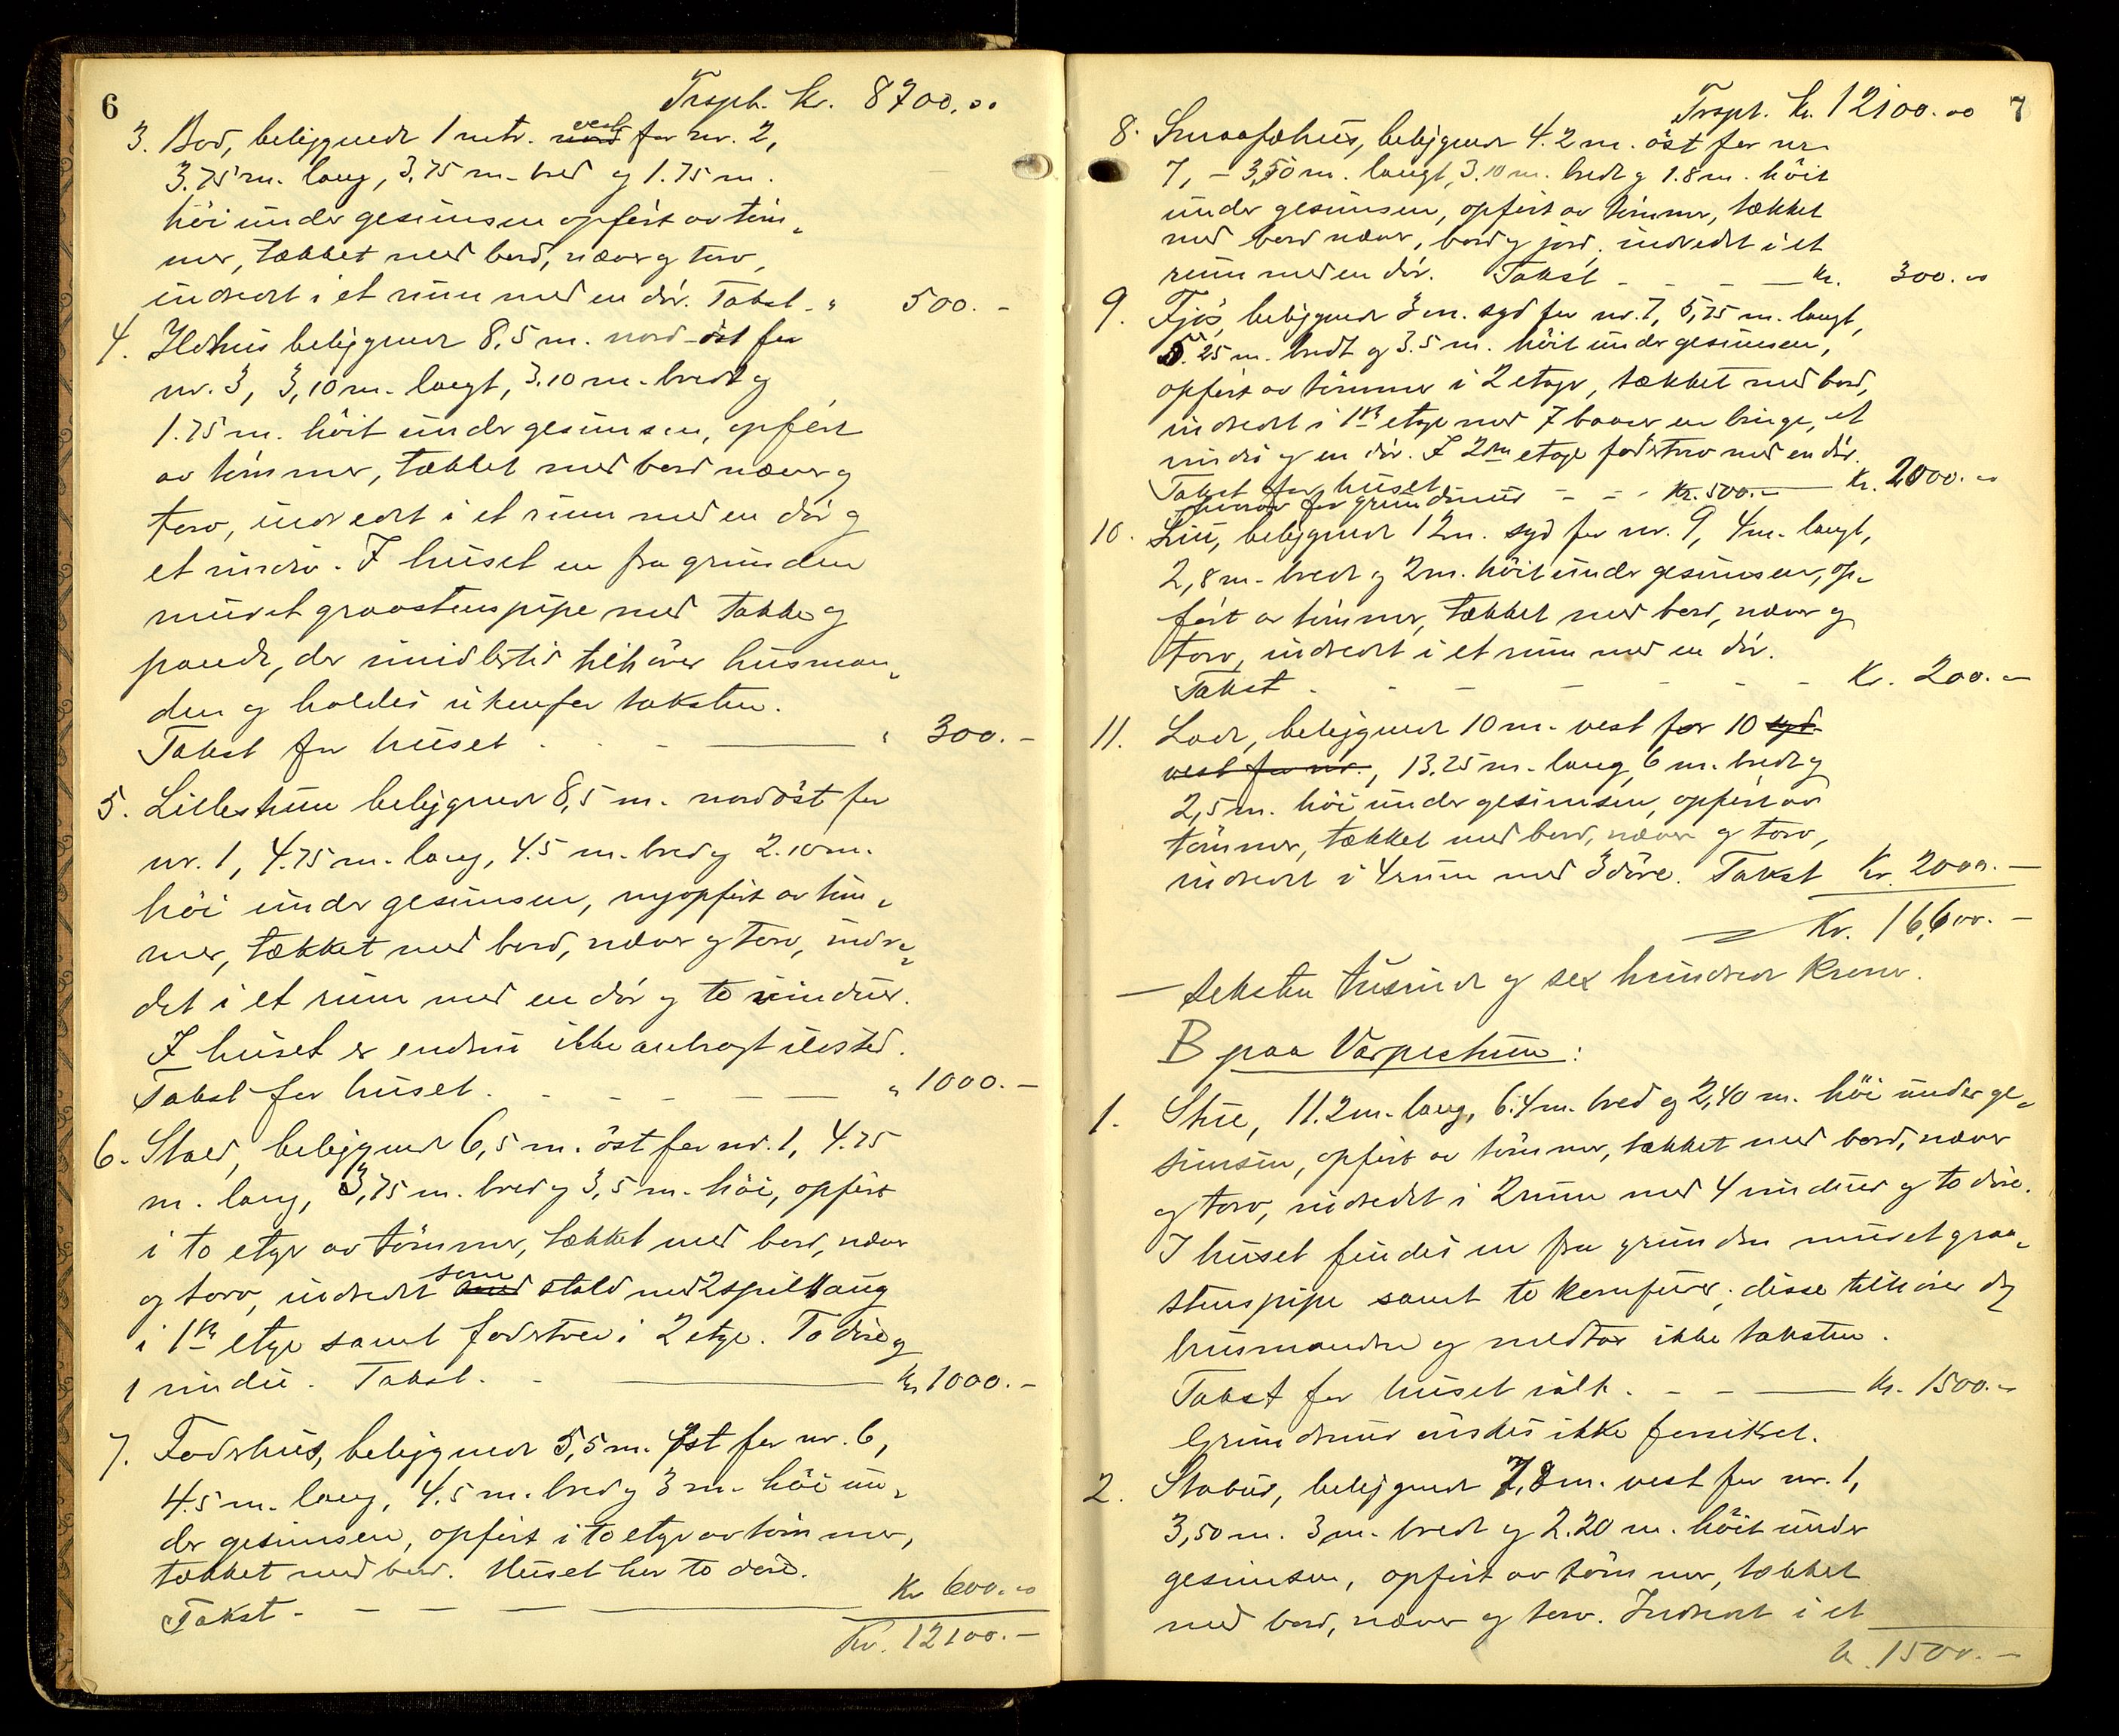 6
Trspt. kr. 8700.00
3. Bod, beliggende 1 mtr. nord vest for nr. 2,
3.75 m. lang, 3.75 m. bred og 1.75 m.
höi under gesimsen opført av töm-
mer, tækket med bord, næver og torv,
indredet i et rum med en dör. Takst - " 500. -
4. Ildhus beliggende 8,5 m. nord-öst for
nr. 3, 3,10 m. langt, 3.10 m. bredt og
1.75 m. höit under gesimsen, opfört
av tömmer, tækket med bord næver og
torv, indredet i et rum med en dör og
et vindu. I huset en fra grunden
muret graastenspipe med takke og
pande, der imidlertid tilhörer husman-
den og holdes utenfor taksten.
Takst for huset . . - " 300. -
5. Lillestuen beliggende 8,5 m. nordöst for
nr. 1, 4.75 m. lang, 4.5 m. bred og 2.10 m.
höi under gesimsen, nyopfört av töm-
mer, tækket med bord, næver og torv, indre-
det i et rum med en dör og to vinduer.
I huset er endnu ikke anbragt ildsted.
Takst for huset . - - - - " 1000. -
6. Stald, beliggende 6,5 m. öst for nr. 1, 4.75
m. lang, 3,75 m. bred og 3,5 m. höi, opfört
i to etger av tömmer, tækket med bord, næver
og torv, indredet med som stald med 2 spilltaug
i 1ste etge samt fodertrev i 2 etge. To döre og
1 vindu. Takst. - Kr. 1000. -
7. Foderhus, beliggende 5,5 m. öst for nr. 6,
4.5 m. lang, 4.5 m. bred og 3 m. höi un-
der gesimsen, opfört i to etger av tömmer,
tækket med bord. Huset har to döre.
Takst - - - - Kr 600.00
Kr. 12100. -
Trspt. kr. 12100.00 7
8. Smaafæhus, beliggende 4.2 m. öst for nr.
7, - 3,50 m. langt, 3.10 m. bredt og 1.8 m. höit
under gesimsen, opfört av tömmer, tækket
med bord næver, bord og jord, indredet i et
rum med en dör. Takst - - - - Kr. 300.00
9. Fjös, beliggende 3 m. syd for nr. 7, 5,75 m. langt,
5.25 m. bredt og 3.5 m. höit under gesimsen,
opfört av tömmer i 2 etager, tækket med bord,
indredet i 1ste etge med 7 baaser en binge, et
vindu og en dör. I 2den etage fodertrev med en dör.
Takst for huset Kr. 2000.00
herav for grundmur - - - Kr. 500. -
10. Smu, beliggende 12 m. syd for nr. 9, 4 m. langt,
2,8 m. bredt og 2 m. höit under gesimsen, op-
fört av tömmer, tækket med bord, næver og
torv, indredet i et rum med en dör.
Takst . - - - - - Kr. 200. -
11. Lade, beliggende 10 m. vest for 10 syd-
vest for nr. , 13.25 m. lang, 6 m. bredt og
2,5 m. höi under gesimsen, opfört av
tömmer, tækket med bord, næver og torv,
indredet i 4 rum med 3 döre. Takst Kr. 2000. -
Kr. 16,600. -
- seksten tusinde og sex hundrede kroner.
B paa Varpestuen:
1. Stue, 11.2 m. lang, 6.4 m. bred og 2,40 m. höi under ge-
simsen, opfört av tömmer, tækket med bord, næver
og torv, indredet i 2 rum med 4 vinduer og to döre.
I huset findes en fra grunden muret graa-
stenspipe samt to komfurer; disse tilhörer dog
husmanden og medtas ikke taksten.
Takst for huset ialt . - - Kr. 1500. -
Grundmur önskes ikke forsikret.
2. Stabur, beliggende 7,8 m. vest for nr. 1,
3,50 m. 3 m. bredt og 2.20 m. höit under
gesimsen, opfört av tömmer, tækket
med bord, næver og torv. Indredet i et
kr. 1500. -